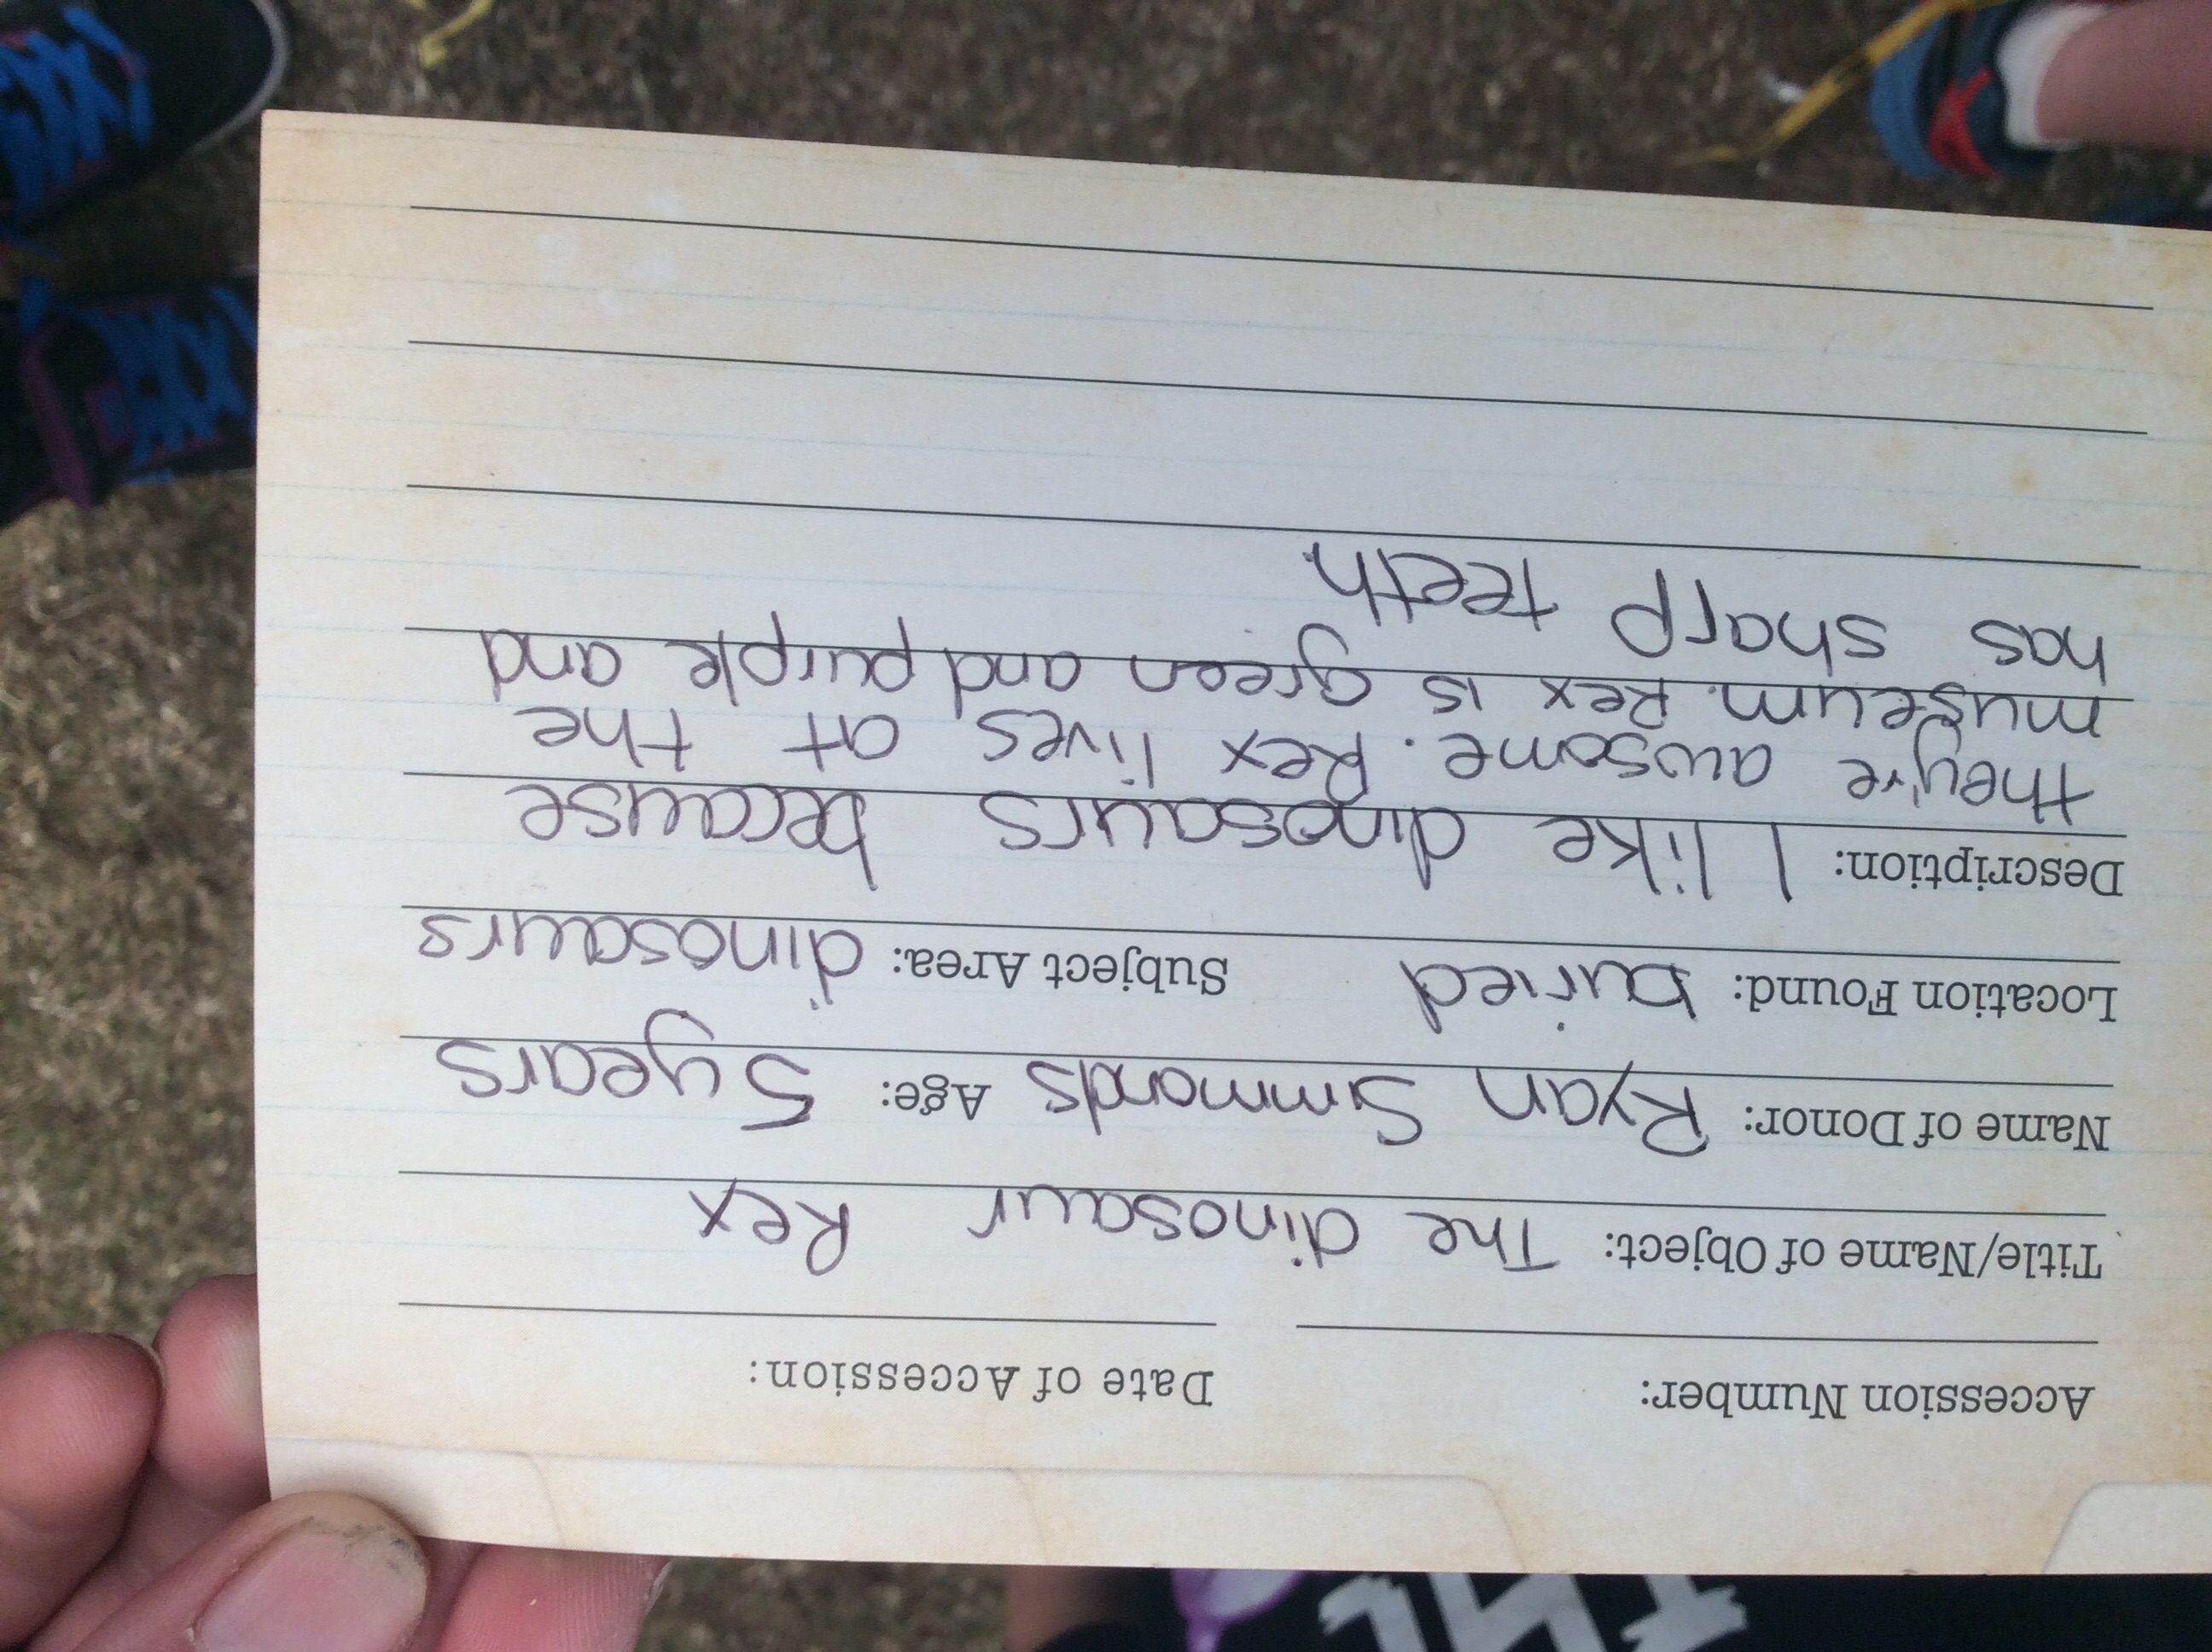 Accession Number: Date of Accession:
Title/Name of Object: The dinosaur Rex
Name of Donor: Ryan Simmonds Age: 5 years
Location Found: buried Subject Area: dinosaurs
Description: I like dinosaurs because
they're awsome. Rex lives at the
museum. Rex is green and purple and
has sharp teeth